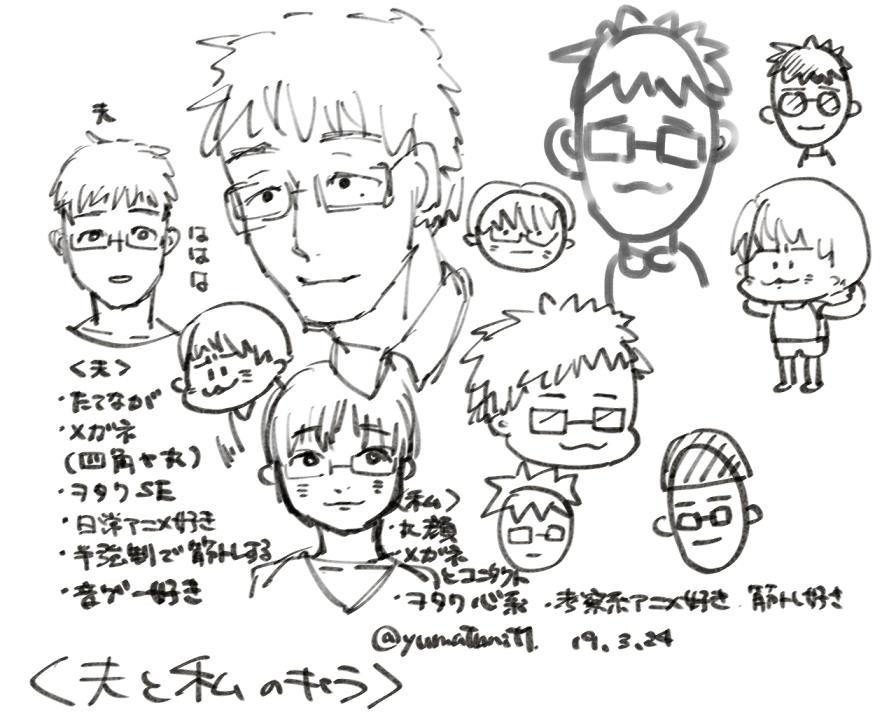 夫
ははは
<夫>
・たてなが
・メガネ
(四角や丸)
・ヲタクSE
・日常アニメ好き
・半強制で筋トレする
・音ゲー好き
<私>
・丸顔
・メガネ
とコンタクト
・ヲタク心系 ・考察系アニメ好き ・筋トレ好き
19.3.24
<夫と私のキャラ>